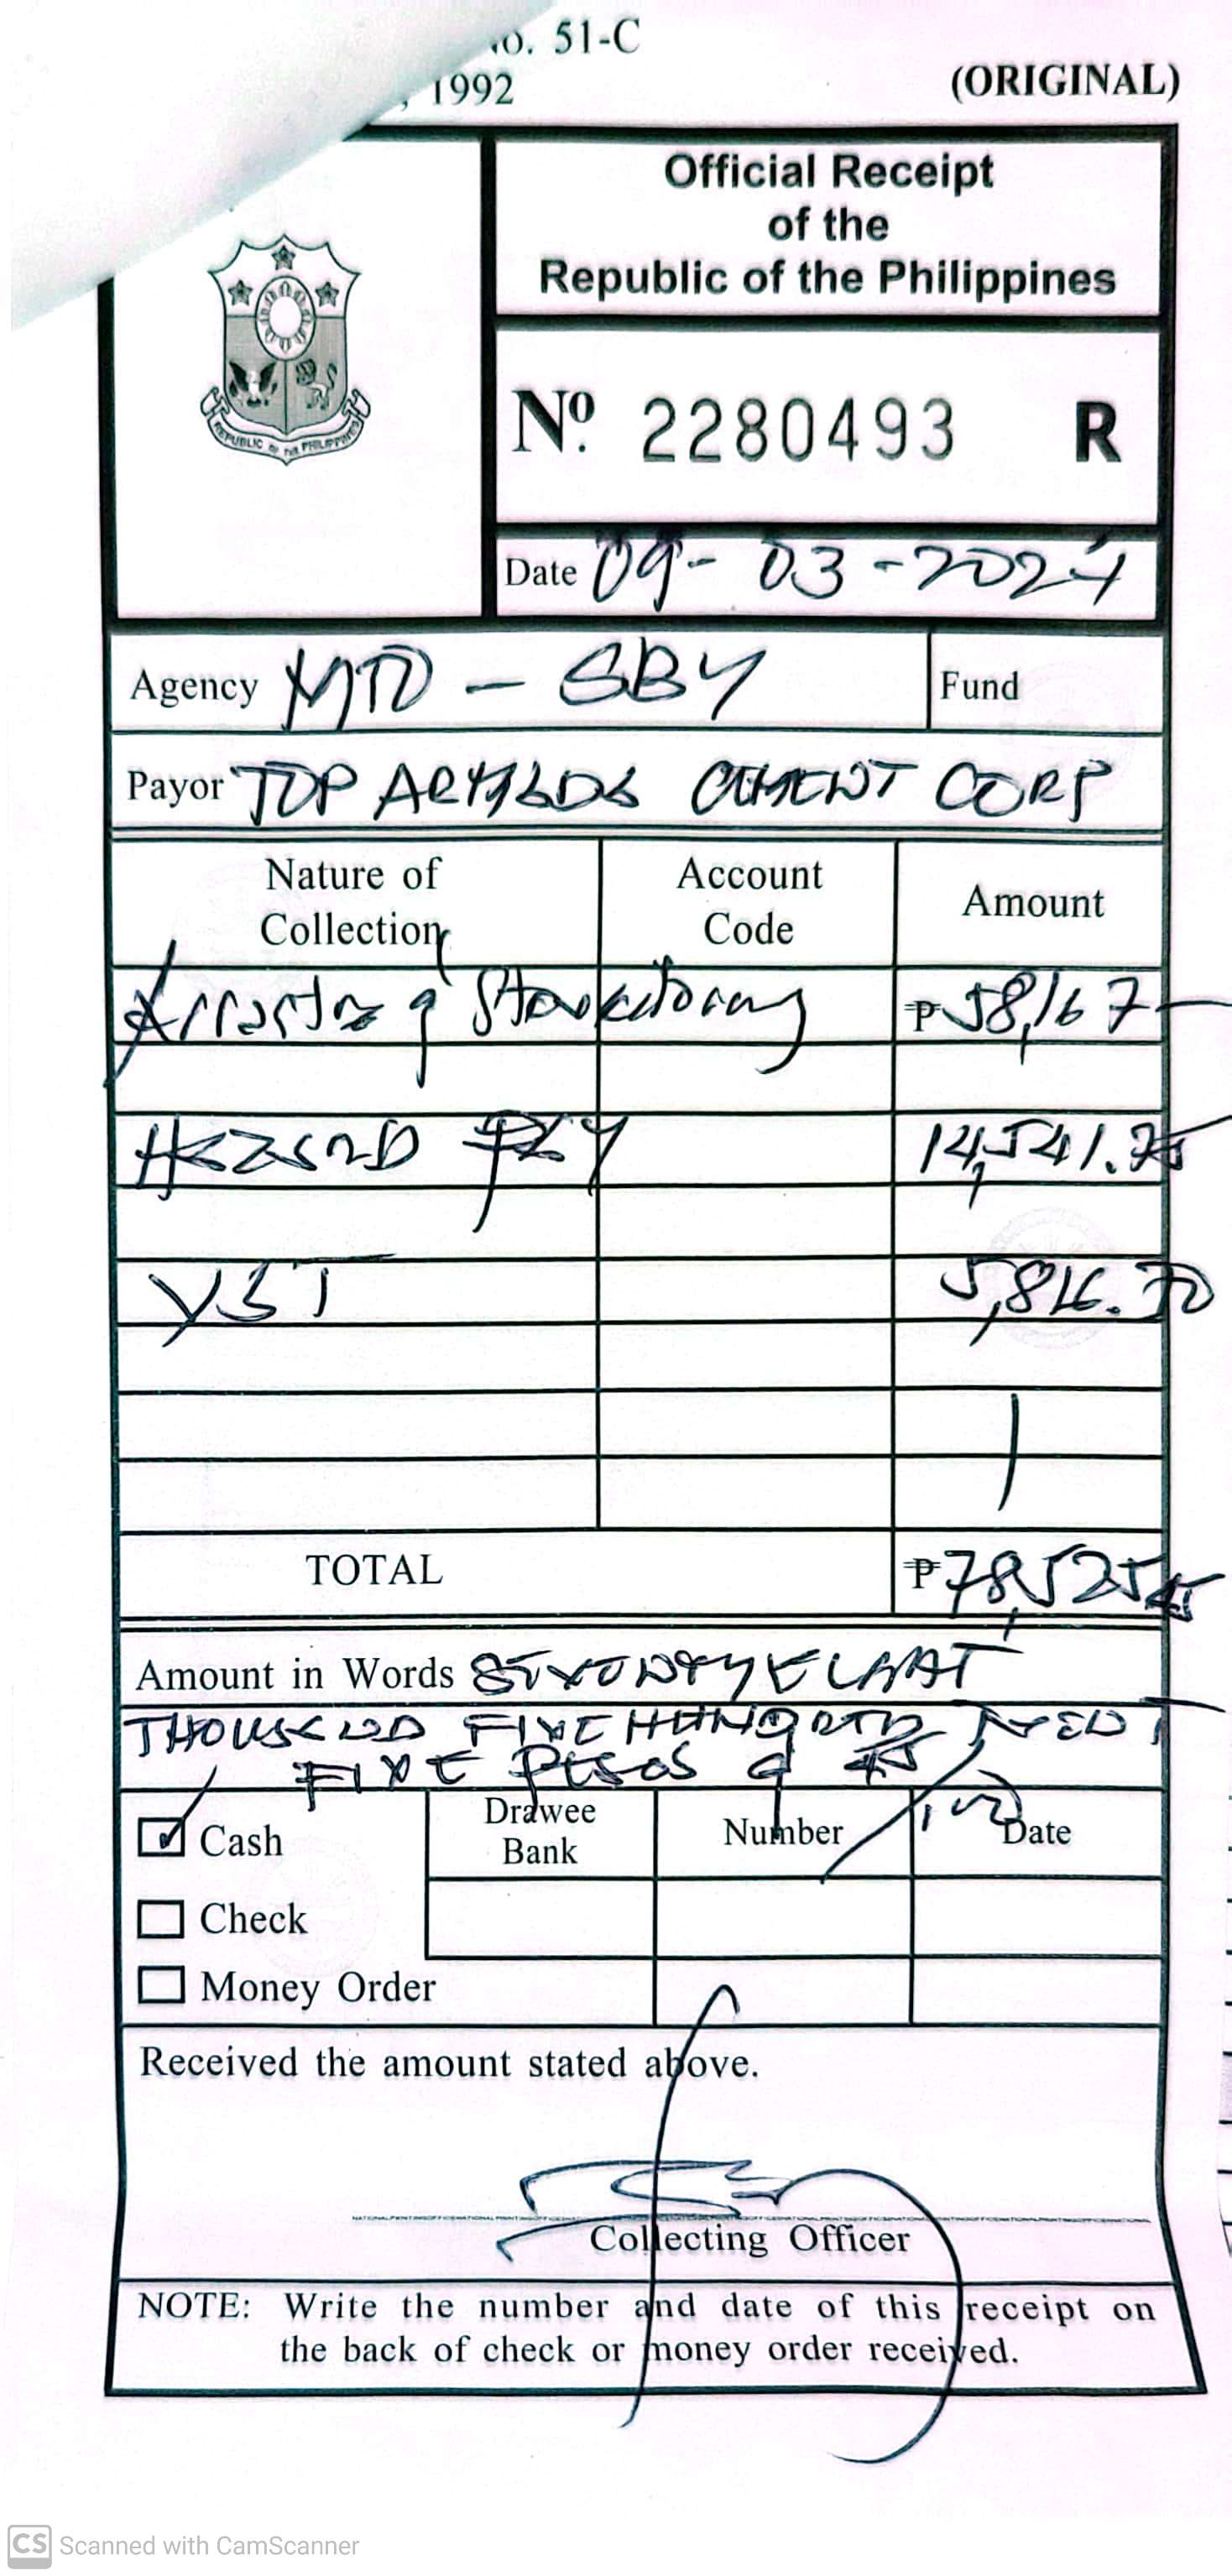 No. 51-C
, 1992
(ORIGINAL)
Official Receipt
of the
Republic of the Philippines
REPUBLIC OF THE PHILIPPINES
Nº. 2280493 R
Date 09-03-2024
Agency - SBY
Fund
Payor TOP CEMENT CORP
Nature of Collection
Account Code
Amount
Arrastre & Stevedoring ₱ 58,167-
HAZARD PAY 14,541.75
VAT 5,816.70
TOTAL ₱ 78,525.45
Amount in Words SEVENTY EIGHT
THOUSAND FIVE HUNDRED TWENTY
FIVE PESOS & 45/100
Cash
Drawee Bank
Number
Date
Check
Money Order
Received the amount stated above.
Collecting Officer
NOTE: Write the number and date of this receipt on
the back of check or money order received.
CS Scanned with CamScanner